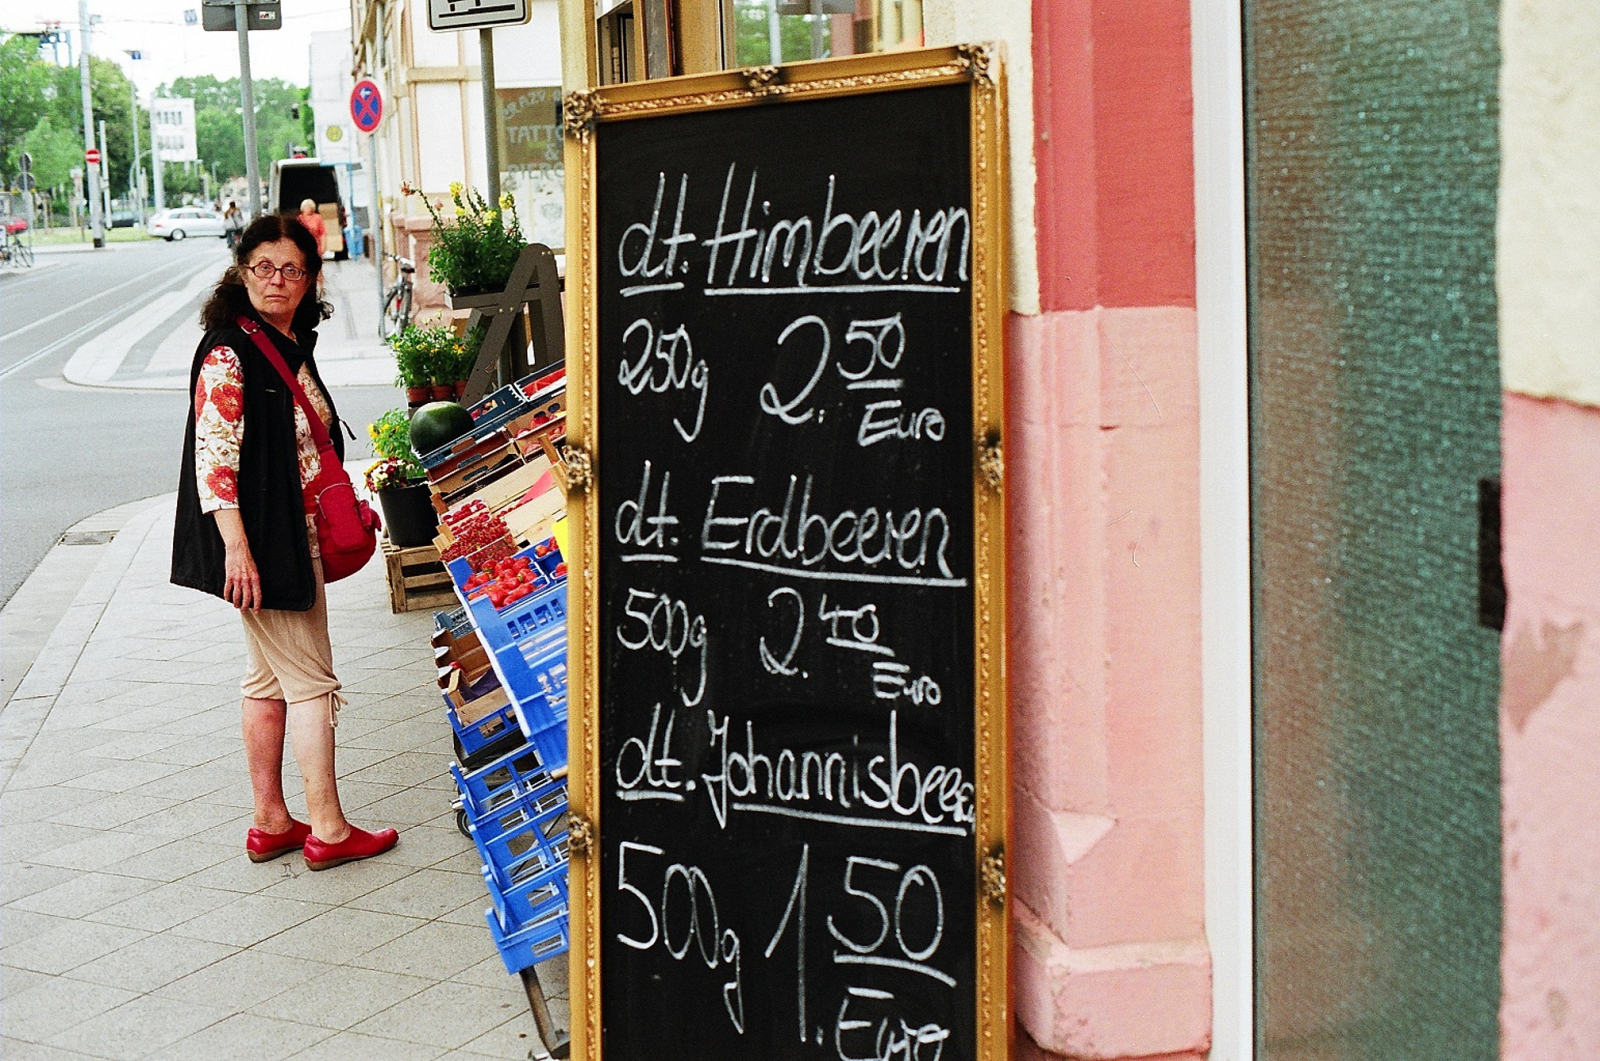 CRAZY
TATTO
&
PIERC
dt. Himbeeren
250g 2.50
Euro
dt. Erdbeeren
500g 2.40
Euro
dt. Johannisbeere
500g 1.50
Euro